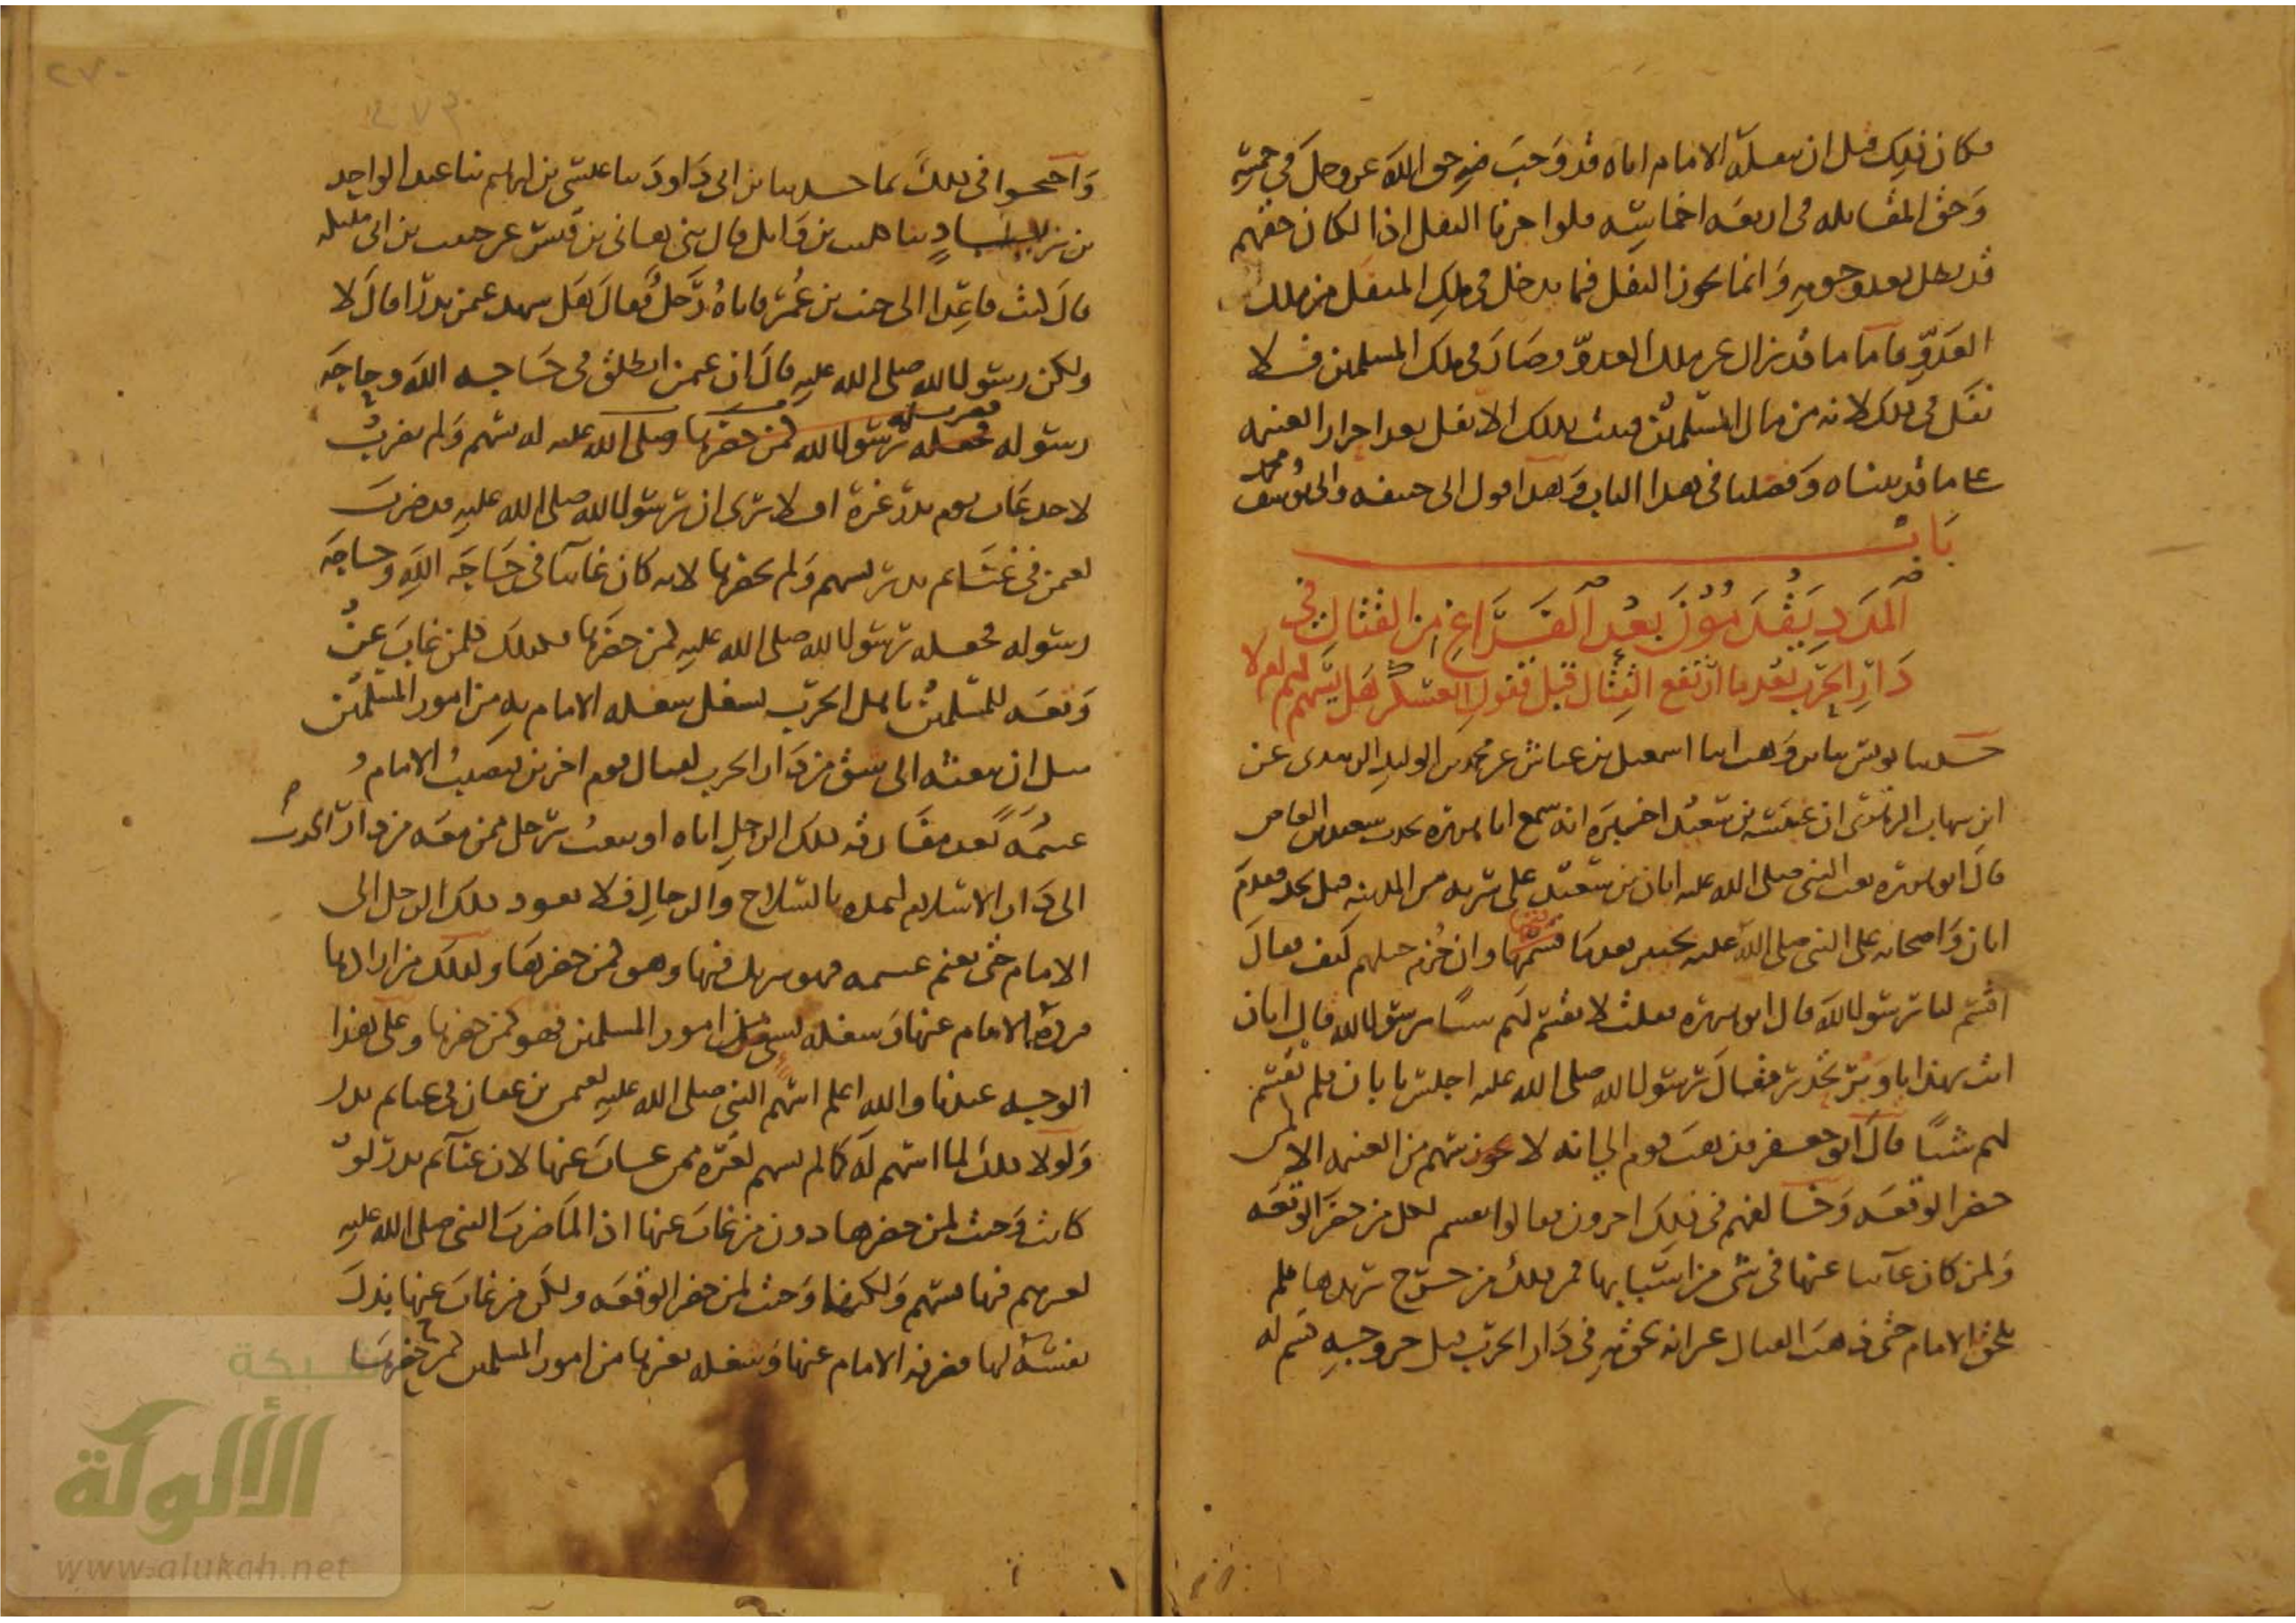 فكان ذلك قبل ان ينفله الامام اياه قد وجب فيه حق الله عز وجل في خمسه
وحق المقاتله في اربعه اخماسه فلو اجزنا النفل اذا لكان حقهم
قد بطل بعد وجوبه وانما يجوز النفل فيما يدخل في ملك المنفل من ملك
العدو فاما ما قد زال عن ملك العدو وصار في ملك المسلمين فلا
نفل في ذلك لانه من مال المسلمين فثبت بذلك الا نفل بعد احراز الغنيمه
على ما قد بيناه وفصلنا في هذا الباب وهذا قول ابي حنيفه وابي يوسف ومحمد
باب
المدد يقدمون بعد الفراغ من القتال في
دار الحرب بعدما ارتفع القتال قبل قفول العسكر هل يسهم لهم ام لا
حدثنا يونس بنا بن وهب ابنا اسمعيل بن عياش عن محمد بن الوليد الزبيدي عن
ابن شهاب الزهري ان عنبسه بن سعيد اخبره انه سمع ابا هريره يحدث سعيد بن العاص
قال ابو هريره بعث النبي صلى الله عليه ابان بن سعيد على سريه من المدينه قبل نجد فقدم
ابان واصحابه على النبي صلى الله عليه بخيبر بعدما فتحها وان حزم خيلهم لليف فقال
اقسم لنا يرسول الله قال ابو هريره فقلت لا تقسم لهم شيا يرسول الله قال ابان
انت بهذا يا وبر تحدر فقال رسول الله صلى الله عليه اجلس يا ابان فلم يقسم
لهم شيا قال ابو جعفر فذهب قوم الى انه لا يسهم من الغنيمه الا لمن
حضر الوقعه وخالفهم في ذلك اخرون فقالوا يقسم لكل من حضر الوقعه
ولمن كان غايبا عنها في شي من اسبابها فمن ذلك من خرج يريدها فلم
يلحق الامام حتى ذهب القتال غير انه لحق به في دار الحرب قبل خروجه قسم له
٢٧٠
واحتجوا في ذلك بما حدثنا بن ابي داود بنا عيسى بن ابراهيم بنا عبد الواحد
بن زياد بنا كليب بن وايل قال بني هاني بن قيس عن حبيب بن ابي مليكه
قال كنت قاعدا الى جنب بن عمر فاتاه رجل فقال هل شهد عثمن بدرا قال لا
ولكن رسول الله صلى الله عليه قال ان عثمن انطلق في حاجه الله وحاجه
رسوله فضرب له رسول الله صلى الله عليه له بسهم ولم يضرب
لاحد غاب يوم بدر غيره افلا ترى ان رسول الله صلى الله عليه قد ضرب
لعثمن في غنايم بدر بسهم ولم يحضرها لانه كان غايبا في حاجه الله وحاجه
رسوله فجعله رسول الله صلى الله عليه كمن حضرها فكذلك كل من غاب عن
وقعه المسلمين باهل الحرب بشغل يشغله الامام به من امور المسلمين
مثل ان يبعثه الى شق من دار الحرب لقتال قوم اخرين فيصيب الامام
غنيمه بعد مفارقه ذلك الرجل اياه او يبعث برجل ممن معه من دار الحرب
الى دار الاسلام ليمده بالسلاح والرجال فلا يعود ذلك الرجل الى
الامام حتى يغنم غنيمه فهو شريك فيها وهو كمن حضرها وكذلك من ارادها
فرده الامام عنها وشغله بشي من امور المسلمين فهو كمن حضرها وعلى هذا
الوجه عندنا والله اعلم اسهم النبي صلى الله عليه لعثمن بن عفان في غنايم بدر
ولولا ذلك لما اسهم له كما لم يسهم لغيره ممن غاب عنها لان غنايم بدر لو
كانت وجبت لمن حضرها دون من غاب عنها اذا لما ضرب النبي صلى الله عليه
لغيرهم فيها بسهم ولكنها وجبت لمن حضر الوقعه ولكل من غاب عنها بذل
نفسه لها فصرفه الامام عنها وشغله بغيرها من امور المسلمين كمن حضرها
شبكة
الألوكة
www.alukah.net